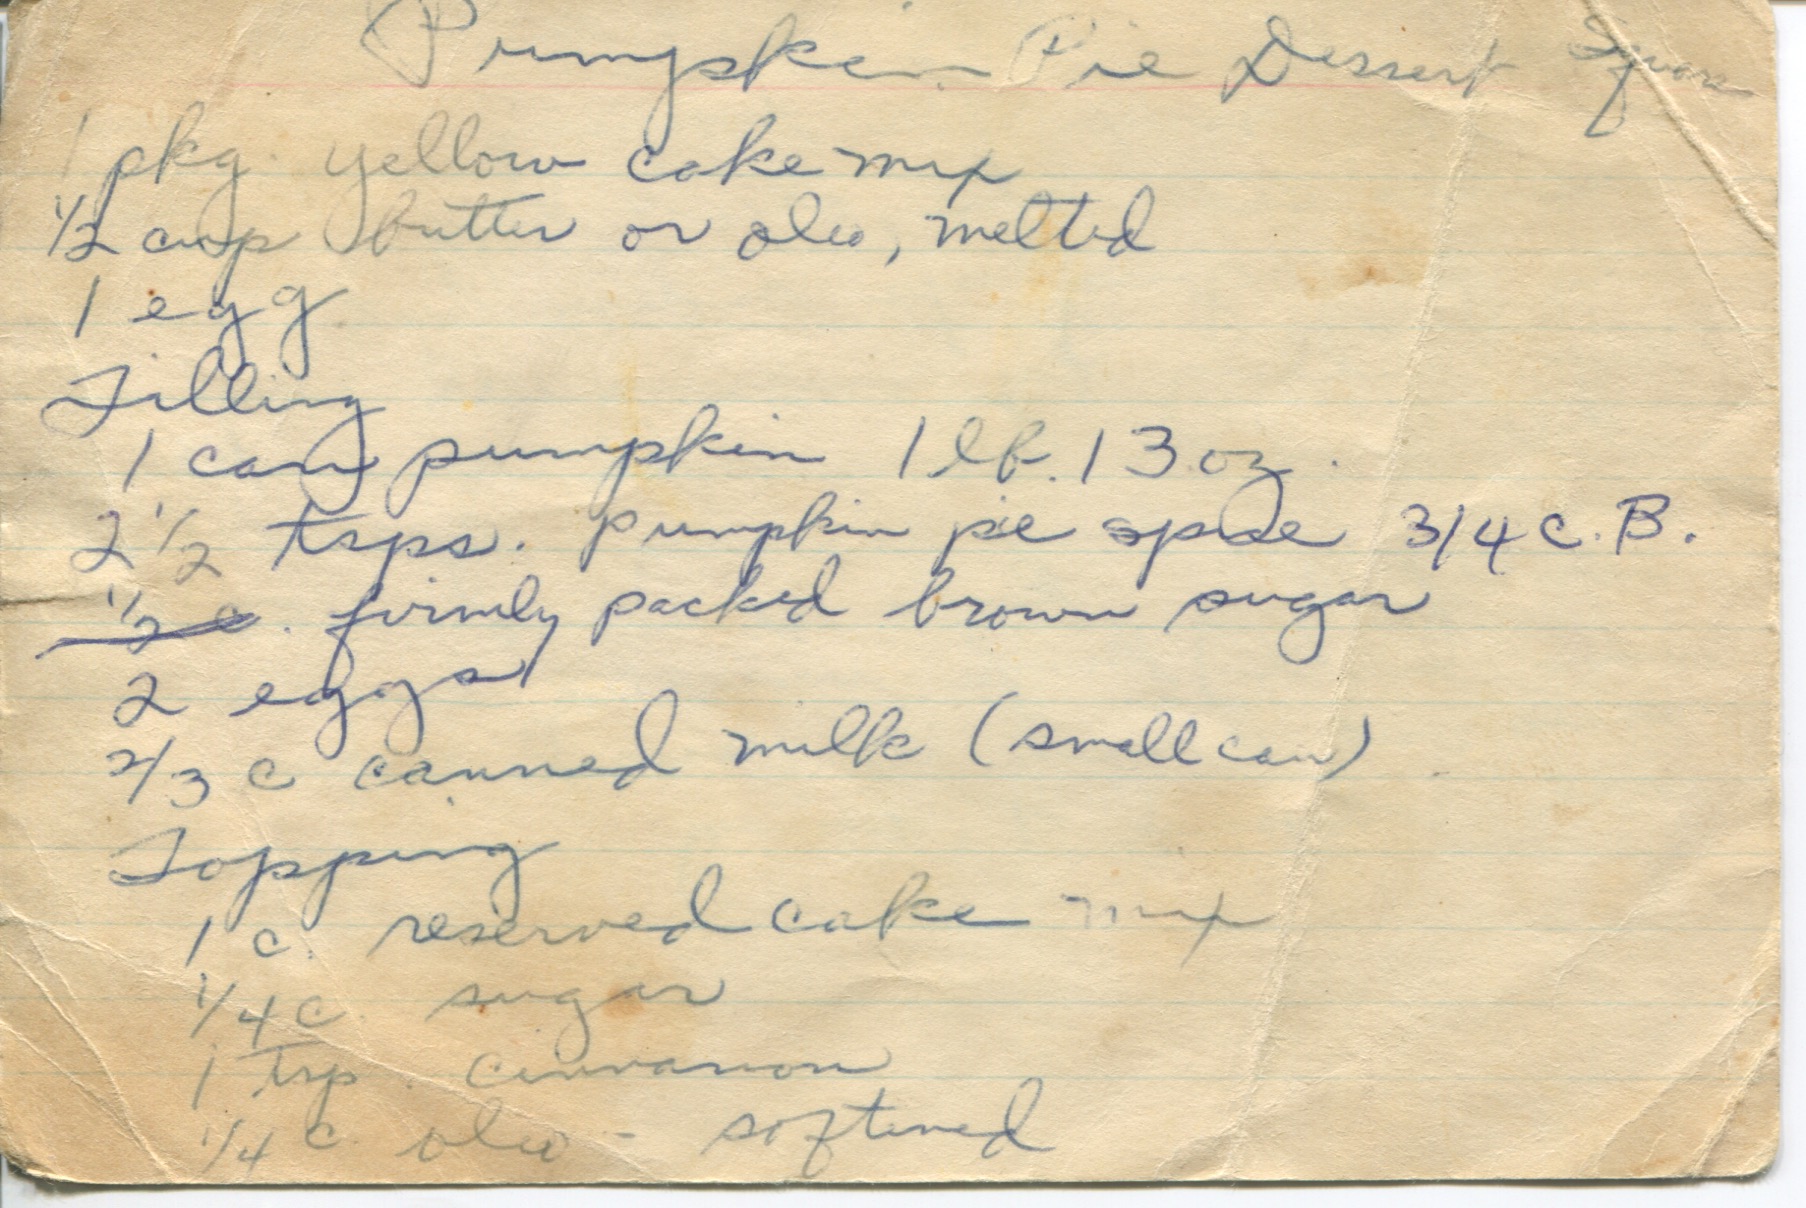 Pumpkin Pie Dessert Squares
1 pkg. yellow cake mix
1/2 cup butter or oleo, melted
1 egg
Filling
1 can pumpkin 1 lb. 13 oz.
2 1/2 tsps. pumpkin pie spice 3/4 c. B.
1/2 c. firmly packed brown sugar
2 eggs
2/3 c canned milk (small can)
Topping
1 c. reserved cake mix
1/4 c. sugar
1 tsp. cinnamon
1/4 c. oleo - softened